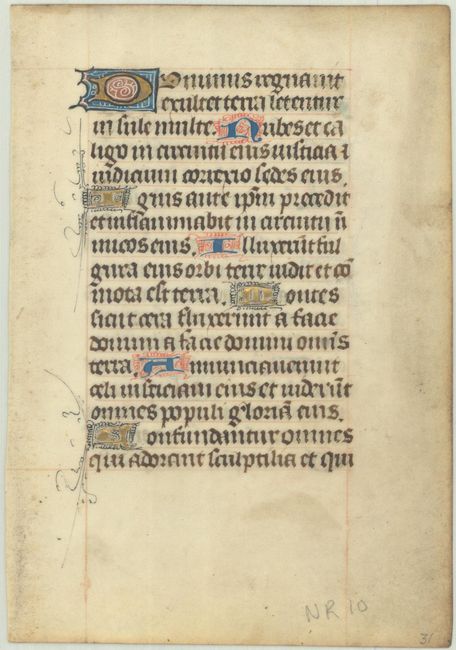 Dominus regnavit
exultet terra letentur
insule multe. Nubes et ca
ligo in circuitu eius iusticia ⁊
iudicium correxio sedes eius.
Ignis ante ip̄m precedit
et inflammabit in circuitu īi
micos eius. Illuxerūt ful
gura eius orbi terre uidit et cō
mota est terra. Montes
sicut cera fluxerunt a facie
domini a facie domini om̄is
terra. Annunciauerunt
celi iusticiam eius et uiderūt
omnes populi gloriā eius.
Confundantur omnes
qui adorant sculptilia et qui
NR 10
31